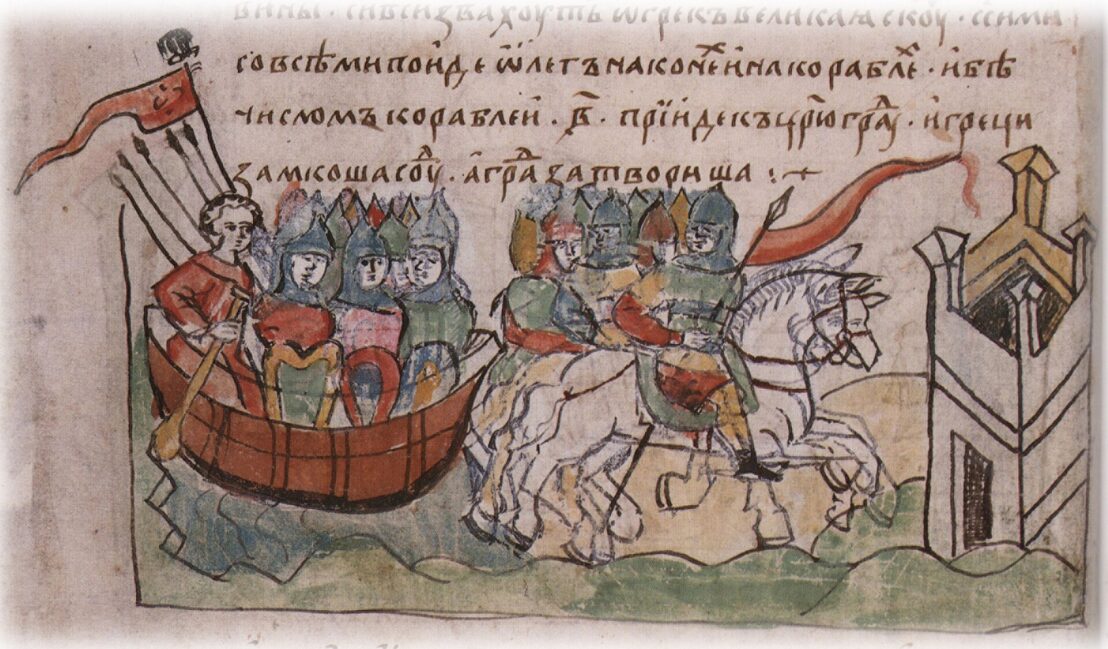 вины . си вси звахоуть ѿ грекъ великаꙗ скоу . с сими
со всѣми поиде ѡлегъ на конеⷯ и на кораблеⷯ . и бѣ
число мъ кораблеи . в҃ . прїиде къ црⷭ҇юграⷣ . и греци
замкоша соуⷣ . а граⷣ затвориша :~